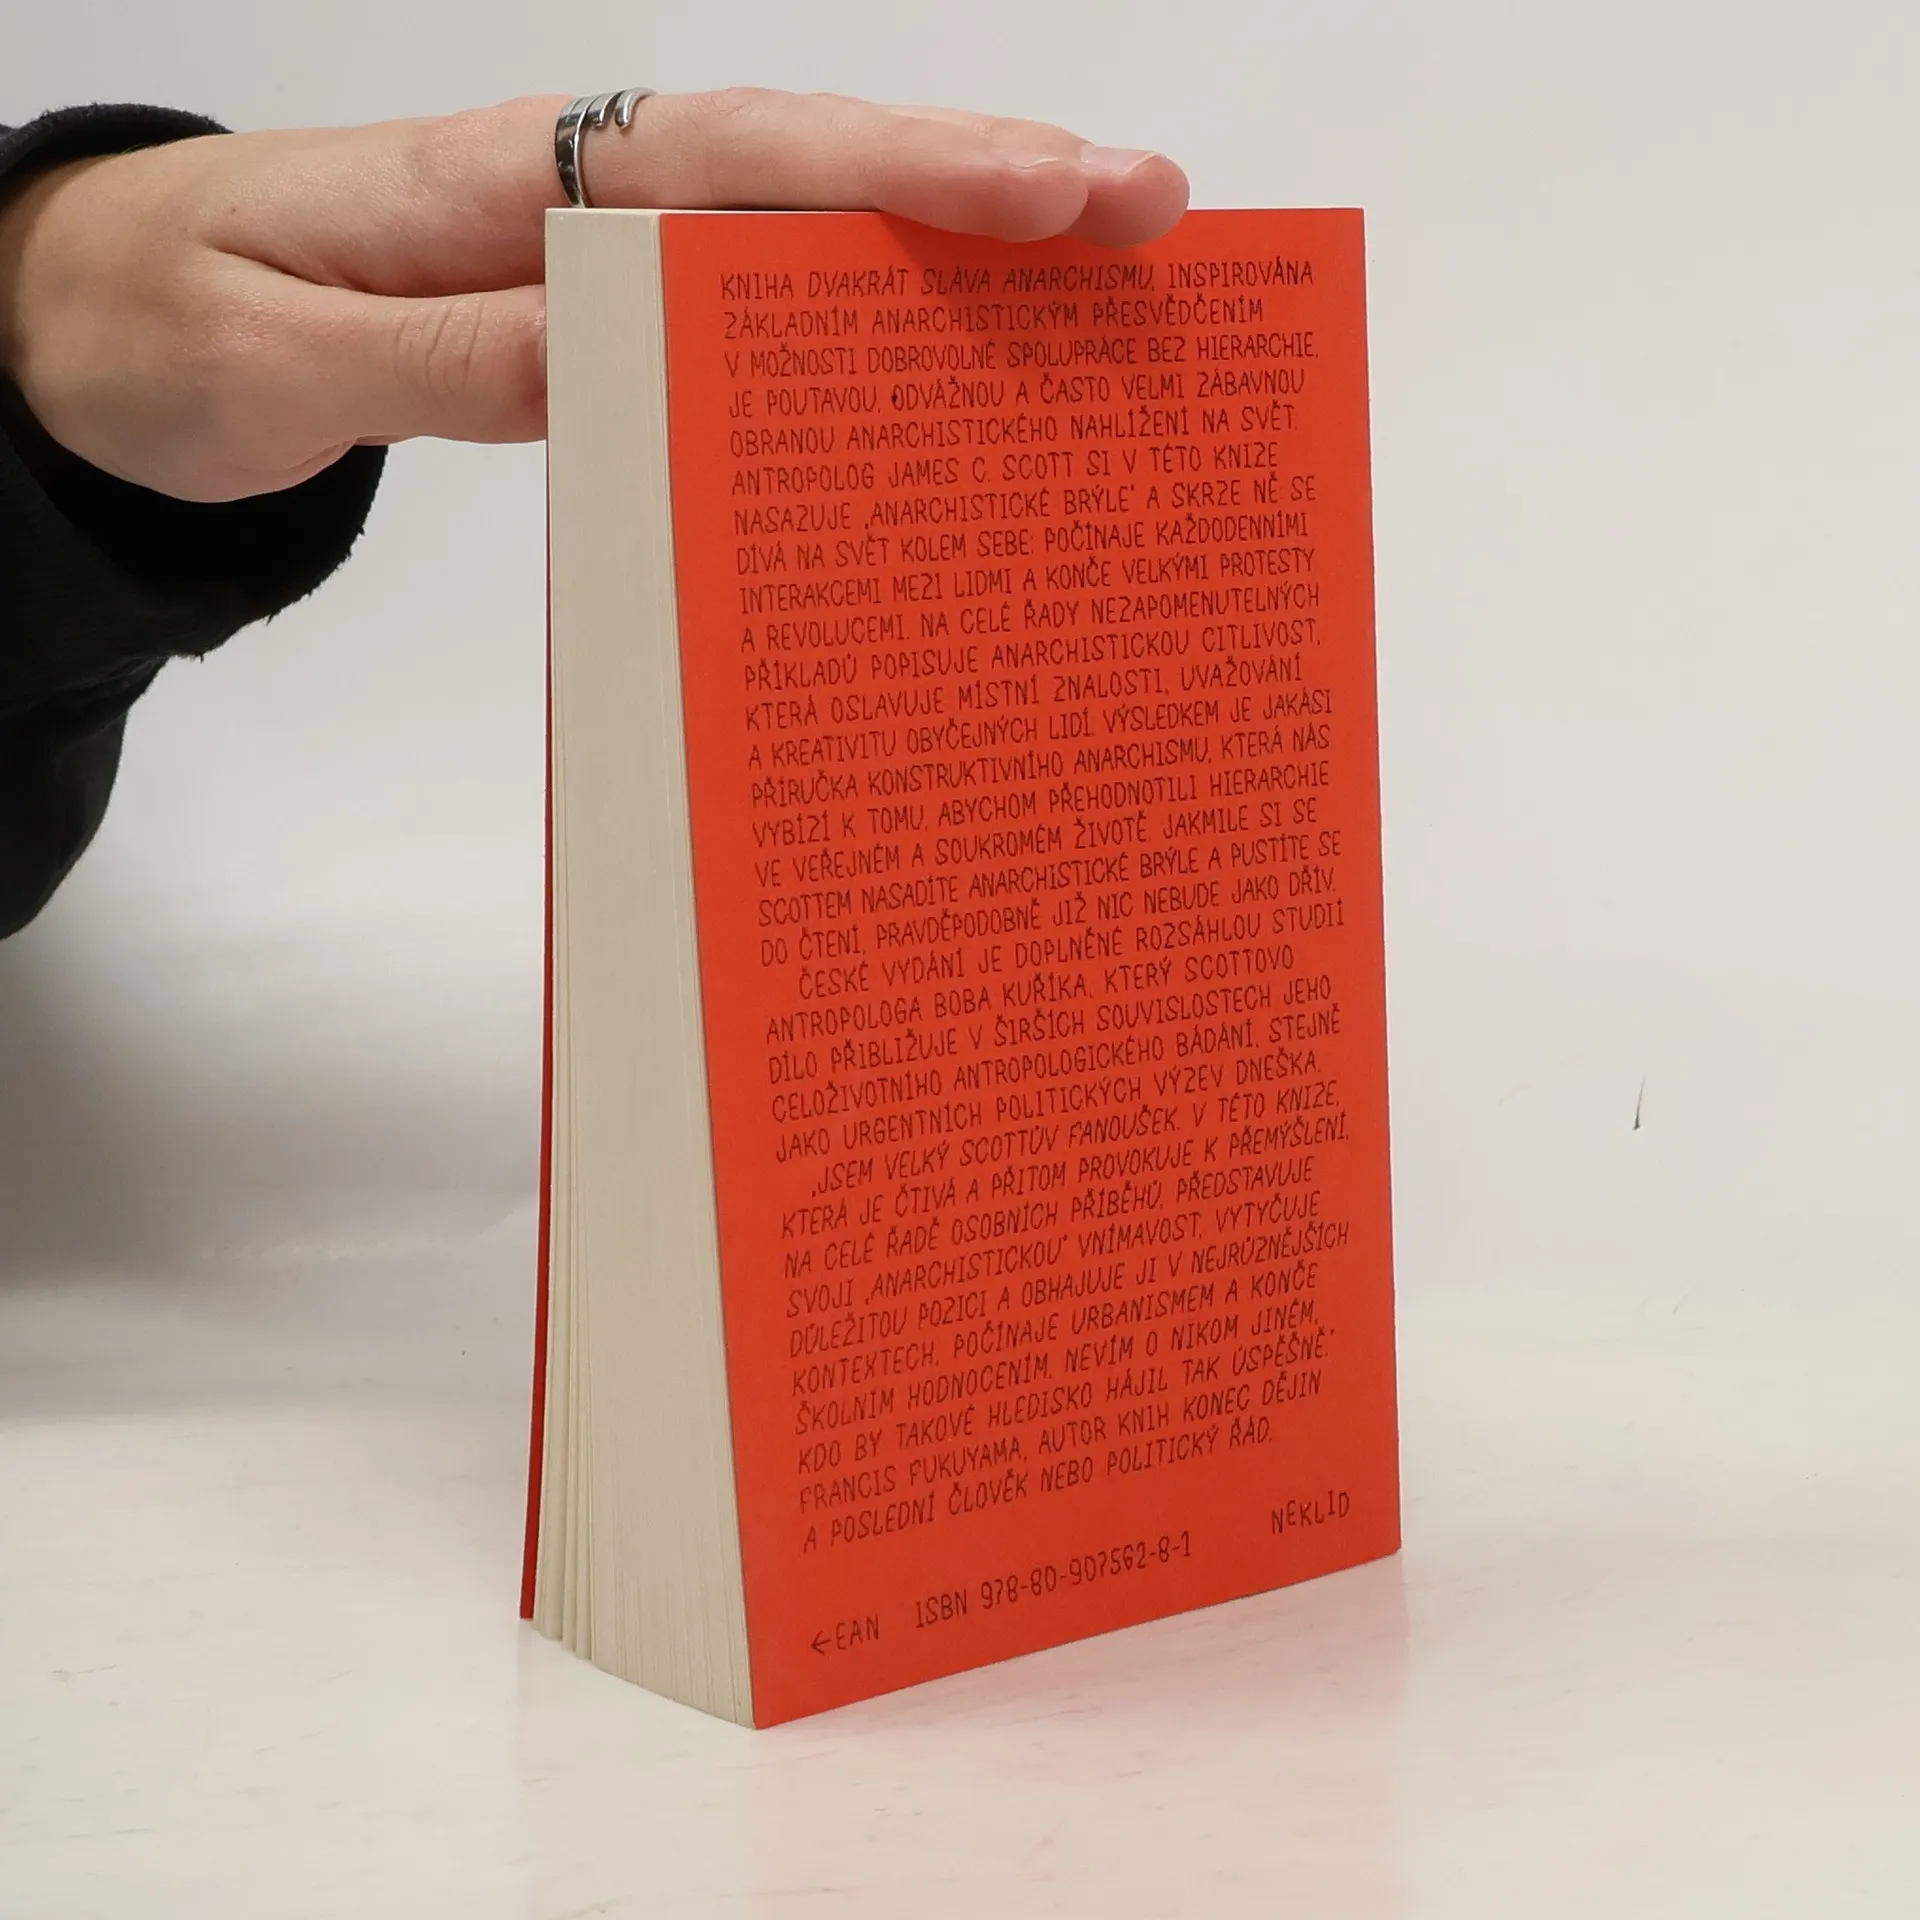 KNIHA DVAKRÁT SLÁVA ANARCHISMU, INSPIROVÁNA
ZÁKLADNÍM ANARCHISTICKÝM PŘESVĚDČENÍM
V MOŽNOSTI DOBROVOLNÉ SPOLUPRÁCE BEZ HIERARCHIE,
JE POUTAVOU, ODVÁŽNOU A ČASTO VELMI ZÁBAVNOU
OBRANOU ANARCHISTICKÉHO NAHLÍŽENÍ NA SVĚT.
ANTROPOLOG JAMES C. SCOTT SI V TÉTO KNIZE
NASAZUJE ‚ANARCHISTICKÉ BRÝLE‘ A SKRZE NĚ SE
DÍVÁ NA SVĚT KOLEM SEBE: POČÍNAJE KAŽDODENNÍMI
INTERAKCEMI MEZI LIDMI A KONČE VELKÝMI PROTESTY
A REVOLUCEMI. NA CELÉ ŘADY NEZAPOMENUTELNÝCH
PŘÍKLADŮ POPISUJE ANARCHISTICKOU CITLIVOST,
KTERÁ OSLAVUJE MÍSTNÍ ZNALOSTI, UVAŽOVÁNÍ
A KREATIVITU OBYČEJNÝCH LIDÍ. VÝSLEDKEM JE JAKÁSI
PŘÍRUČKA KONSTRUKTIVNÍHO ANARCHISMU, KTERÁ NÁS
VYBÍZÍ K TOMU, ABYCHOM PŘEHODNOTILI HIERARCHIE
VE VEŘEJNÉM A SOUKROMÉM ŽIVOTĚ. JAKMILE SI SE
SCOTTEM NASADÍTE ANARCHISTICKÉ BRÝLE A PUSTÍTE SE
DO ČTENÍ, PRAVDĚPODOBNĚ JIŽ NIC NEBUDE JAKO DŘÍV.
ČESKÉ VYDÁNÍ JE DOPLNĚNÉ ROZSÁHLOU STUDIÍ
ANTROPOLOGA BOBA KUŘÍKA, KTERÝ SCOTTOVO
DÍLO PŘIBLIŽUJE V ŠIRŠÍCH SOUVISLOSTECH JEHO
CELOŽIVOTNÍHO ANTROPOLOGICKÉHO BÁDÁNÍ, STEJNĚ
JAKO URGENTNÍCH POLITICKÝCH VÝZEV DNEŠKA.
‚JSEM VELKÝ SCOTTŮV FANOUŠEK. V TÉTO KNIZE,
KTERÁ JE ČTIVÁ A PŘITOM PROVOKUJE K PŘEMÝŠLENÍ,
NA CELÉ ŘADĚ OSOBNÍCH PŘÍBĚHŮ, PŘEDSTAVUJE
SVOJI ‚ANARCHISTICKOU‘ VNÍMAVOST, VYTYČUJE
DŮLEŽITOU POZICI A OBHAJUJE JI V NEJRŮZNĚJŠÍCH
KONTEXTECH, POČÍNAJE URBANISMEM A KONČE
ŠKOLNÍM HODNOCENÍM. NEVÍM O NIKOM JINÉM,
KDO BY TAKOVÉ HLEDISKO HÁJIL TAK ÚSPĚŠNĚ.‘
FRANCIS FUKUYAMA, AUTOR KNIH KONEC DĚJIN
A POSLEDNÍ ČLOVĚK NEBO POLITICKÝ ŘÁD.
NEKLID
←EAN ISBN 978-80-907562-8-1